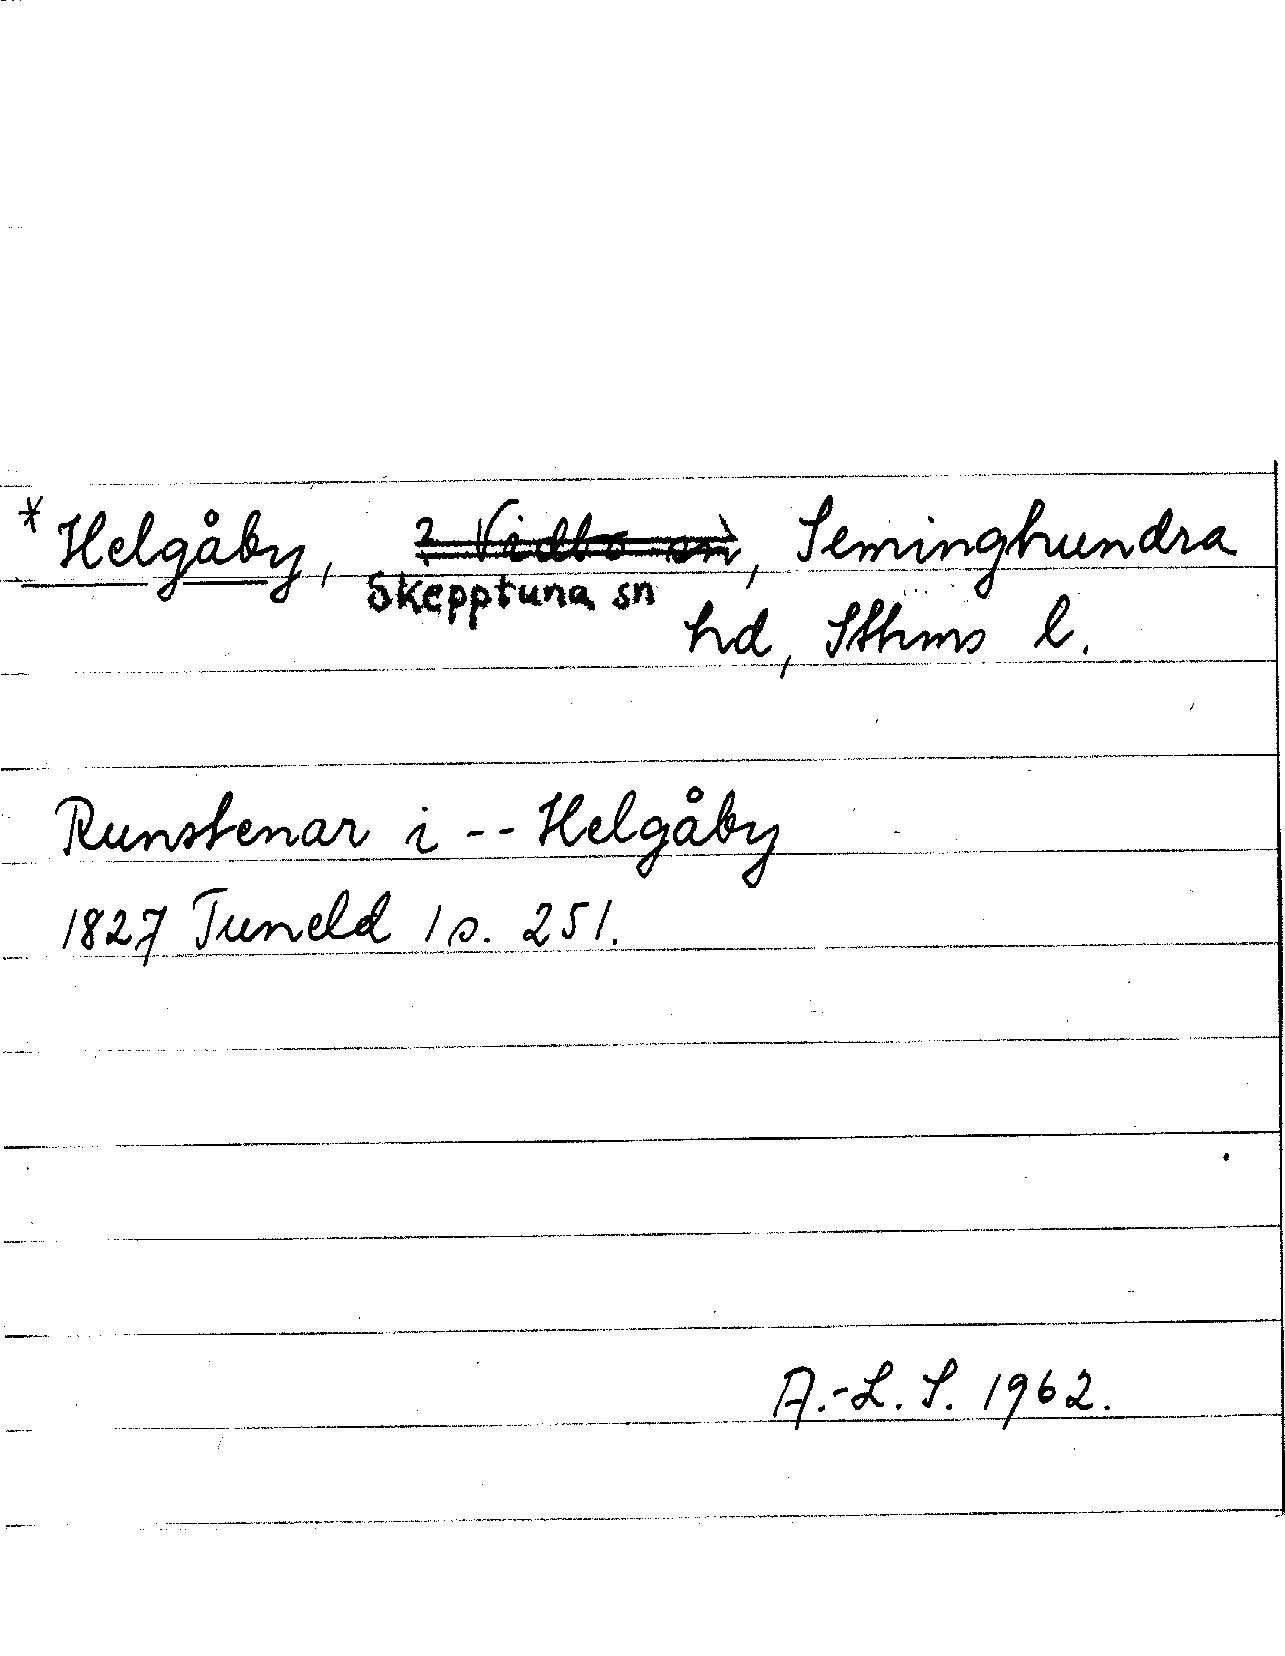 *Helgåby, ? Vidbo sn, Seminghundra
Skepptuna sn
hd, Sthms l.
Runstenar i -- Helgåby
1827 Tuneld 1 s. 251.
A.-L. S. 1962.